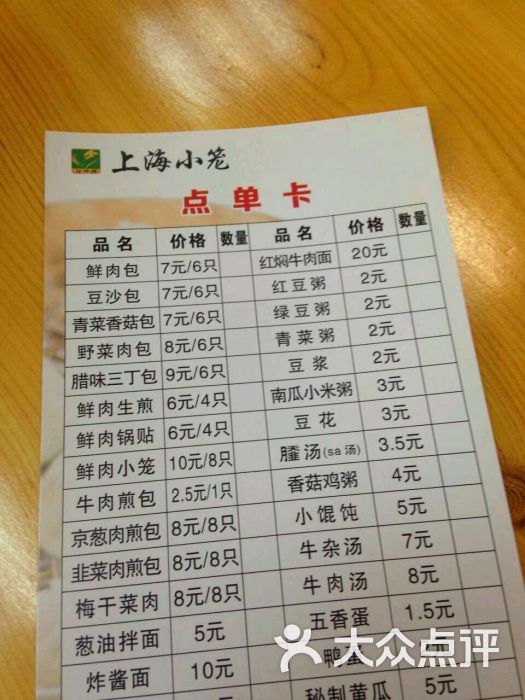 上海小笼
点单卡
品名 价格 数量 品名 价格 数量
鲜肉包 7元/6只 红焖牛肉面 20元
豆沙包 7元/6只 红豆粥 2元
青菜香菇包 7元/6只 绿豆粥 2元
野菜肉包 8元/6只 青菜粥 2元
腊味三丁包 9元/6只 豆浆 2元
鲜肉生煎 6元/4只 南瓜小米粥 3元
鲜肉锅贴 6元/4只 豆花 3元
鲜肉小笼 10元/8只 汤(sa汤) 3.5元
牛肉煎包 2.5元/1只 香菇鸡粥 4元
京葱肉煎包 8元/8只 小馄饨 5元
韭菜肉煎包 8元/8只 牛杂汤 7元
梅干菜肉 8元/8只 牛肉汤 8元
葱油拌面 5元 五香蛋 1.5元
炸酱面 10元 鸭蛋
秘制黄瓜 5元
大众点评